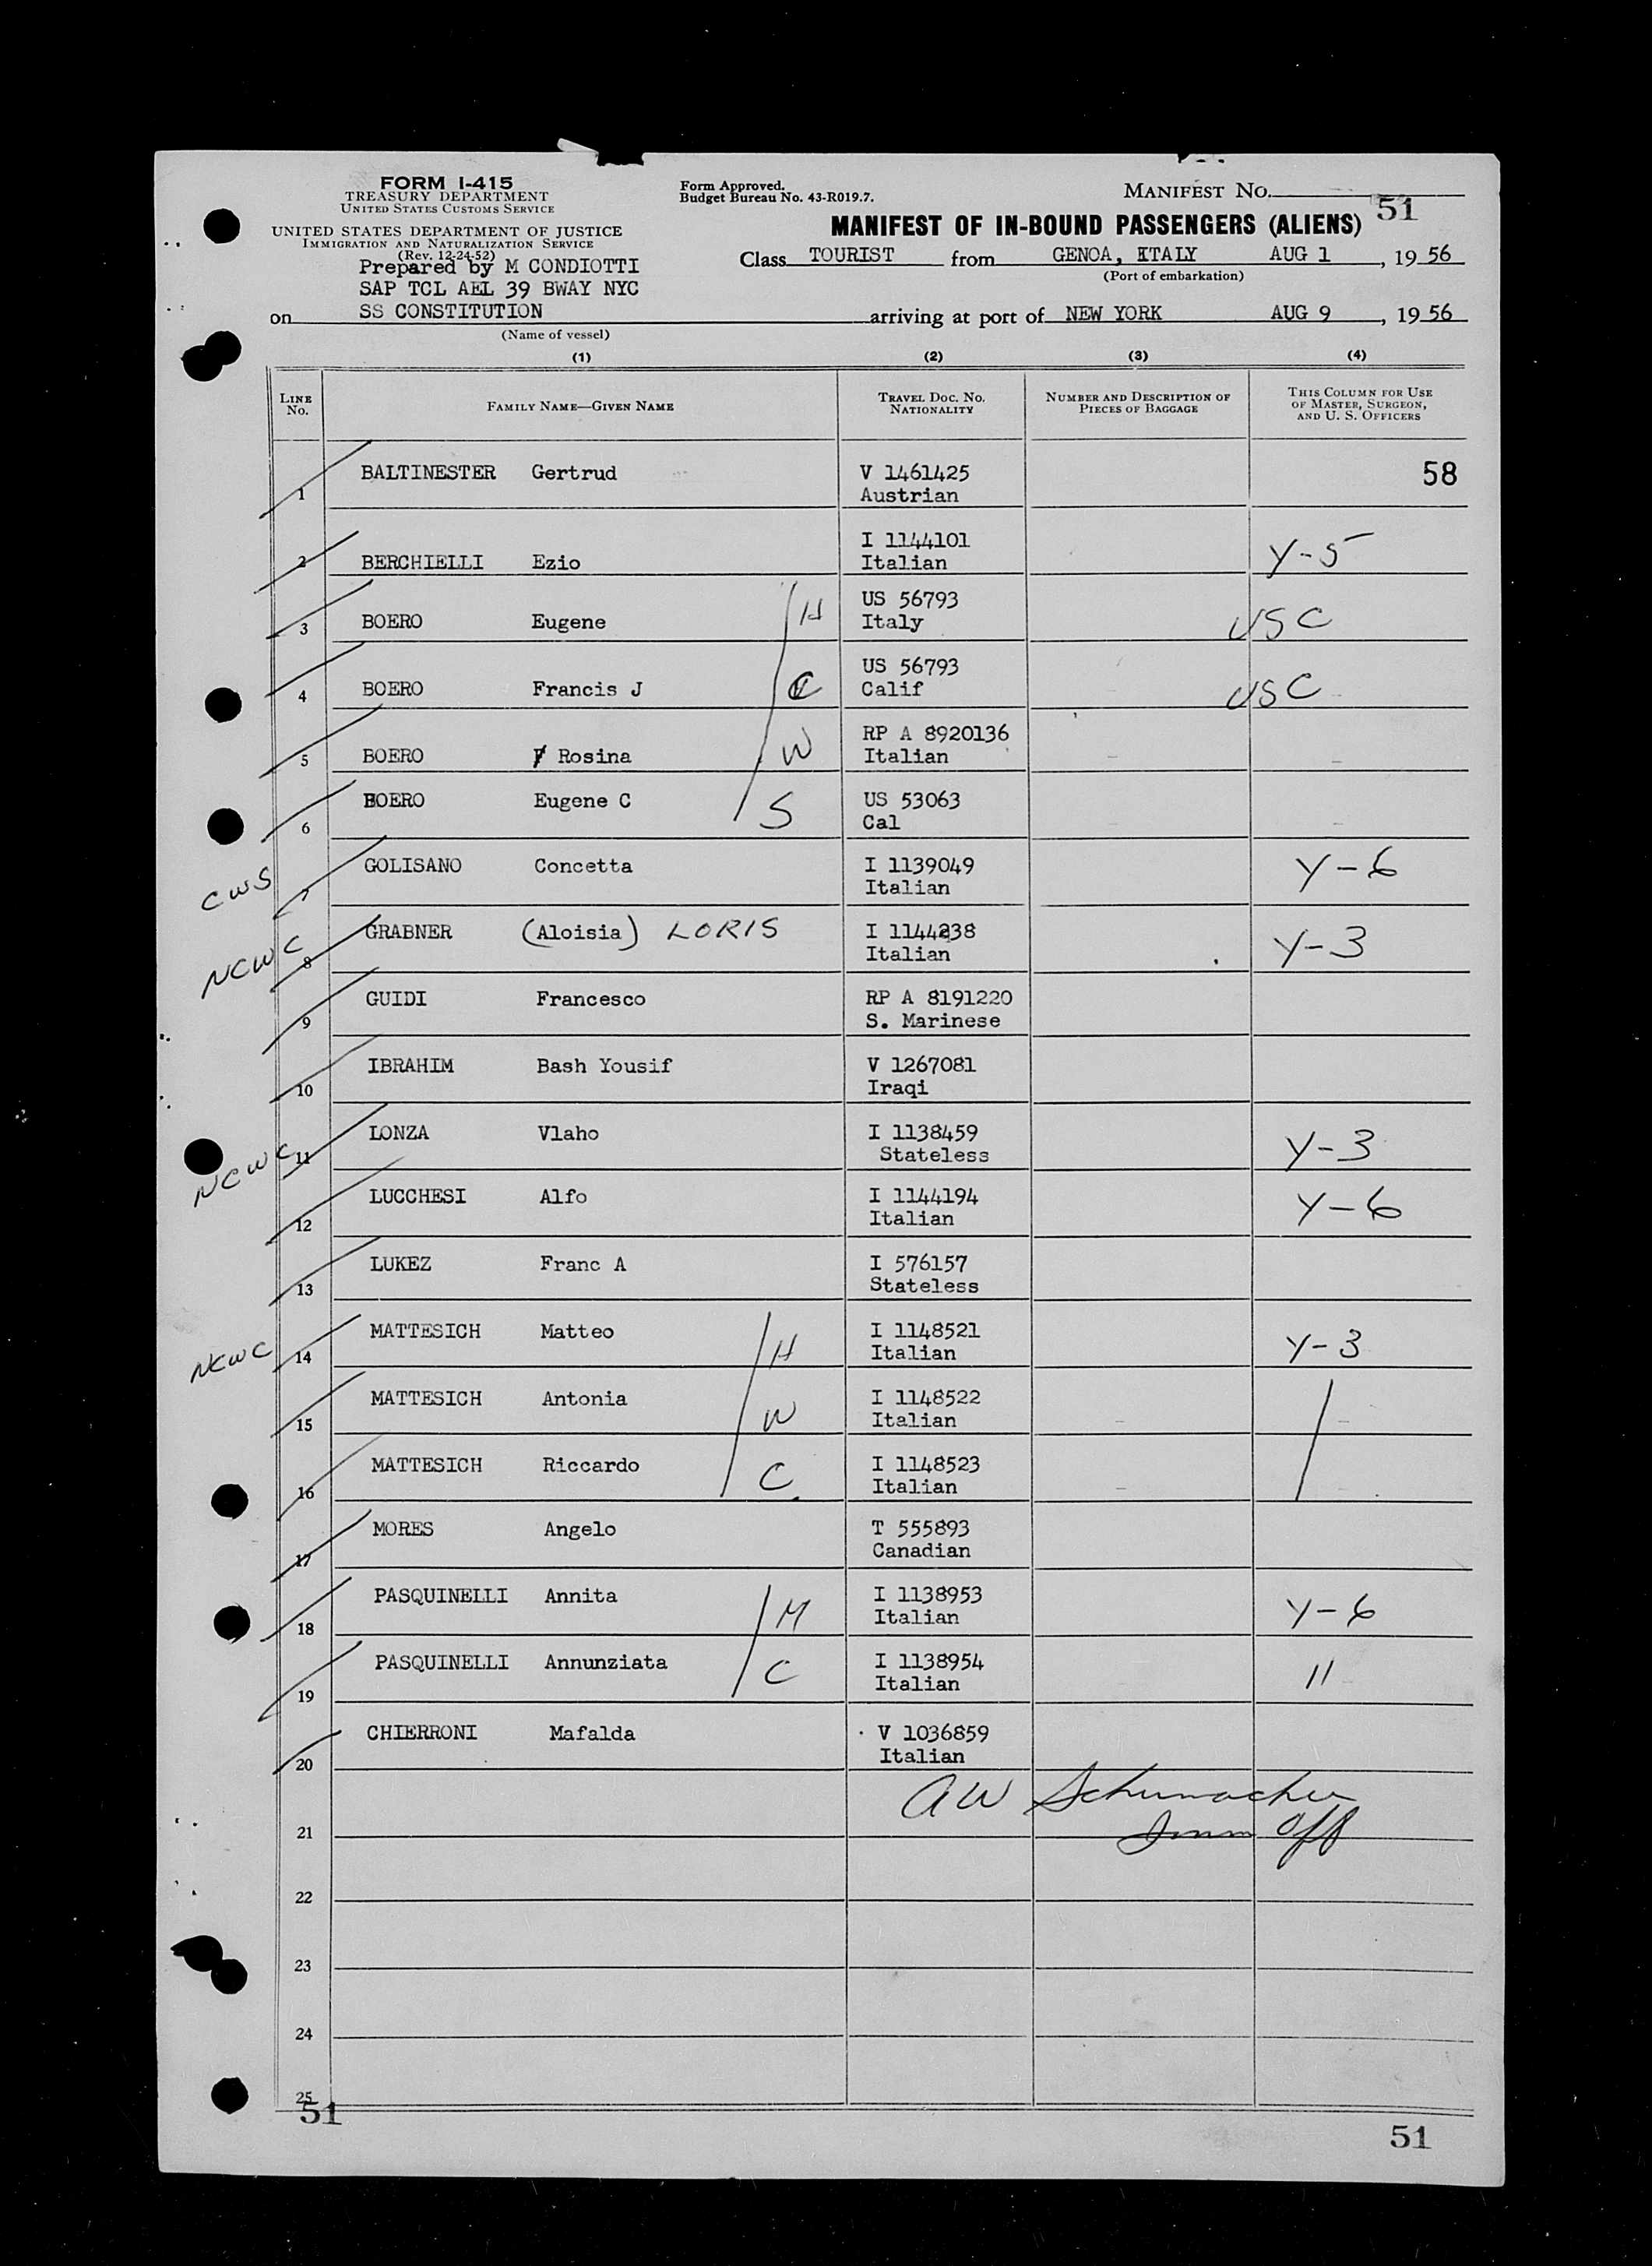 FORM I-415
TREASURY DEPARTMENT
UNITED STATES CUSTOMS SERVICE
UNITED STATES DEPARTMENT OF JUSTICE
IMMIGRATION AND NATURALIZATION SERVICE
(Rev. 12-24-52)
Prepared by M CONDIOTTI
SAP TCL AEL 39 BWAY NYC
Form Approved.
Budget Bureau No. 43-R019.7.
MANIFEST NO. 51
MANIFEST OF IN-BOUND PASSENGERS (ALIENS)
Class TOURIST from GENOA, ITALY AUG 1, 19 56
(Port of embarkation)
on SS CONSTITUTION arriving at port of NEW YORK AUG 9, 19 56
(Name of vessel)
(1) (2) (3) (4)
LINE No. FAMILY NAME—GIVEN NAME TRAVEL DOC. NO. NATIONALITY NUMBER AND DESCRIPTION OF PIECES OF BAGGAGE THIS COLUMN FOR USE OF MASTER, SURGEON, AND U. S. OFFICERS
1 BALTINESTER Gertrud V 1461425 58
Austrian
2 BERCHIELLI Ezio I 1144101 Y-5
Italian
3 BOERO Eugene H US 56793 USC
Italy
4 BOERO Francis J C US 56793 USC
Calif
5 BOERO Rosina W RP A 8920136
Italian
6 BOERO Eugene C S US 53063
Cal
CWS 7 GOLISANO Concetta I 1139049 Y-6
Italian
NCWC 8 GRABNER (Aloisia) LORIS I 1144238 Y-3
Italian
9 GUIDI Francesco RP A 8191220
S. Marinese
10 IBRAHIM Bash Yousif V 1267081
Iraqi
NCWC 11 LONZA Vlaho I 1138459 Y-3
Stateless
12 LUCCHESI Alfo I 1144194 Y-6
Italian
13 LUKEZ Franc A I 576157
Stateless
NCWC 14 MATTESICH Matteo H I 1148521 Y-3
Italian
15 MATTESICH Antonia W I 1148522
Italian
16 MATTESICH Riccardo C I 1148523
Italian
17 MORES Angelo T 555893
Canadian
18 PASQUINELLI Annita M I 1138953 Y-6
Italian
19 PASQUINELLI Annunziata C I 1138954 "
Italian
20 CHIERRONI Mafalda V 1036859
Italian
AW Schumacher
21 Imm Off
22
23
24
25
51
51